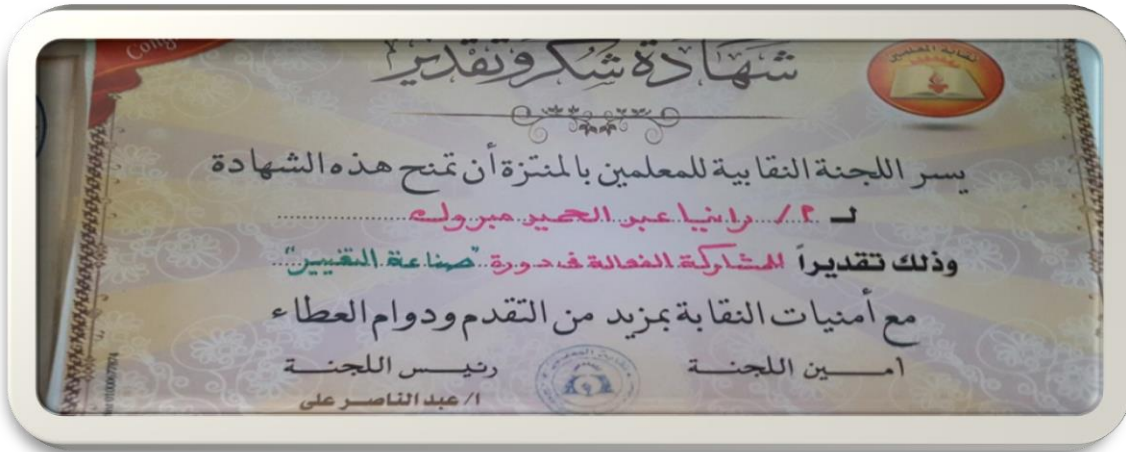 Cong
شهادة شكر وتقدير
نقابة المعلمين
يسر اللجنة النقابية للمعلمين بالمنتزة أن تمنح هذه الشهادة
لـ م/ رانيا عبد الحميد مبروك
وذلك تقديراً للمشاركة الفعالة فى دورة "صناعة التغيير"
مع أمنيات النقابة بمزيد من التقدم ودوام العطاء
أمـــين اللجنة
رئيـــس اللجنـــة
ا/ عبد الناصر على